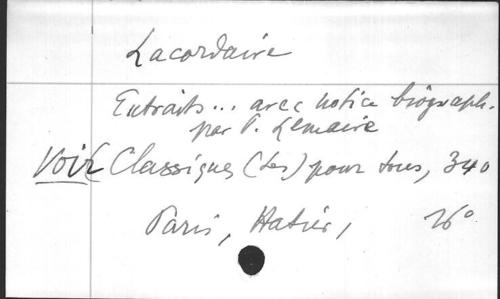 Lacordaire
Extraits... avec notice biograph.
par P. Lemaire
Voir Classiques (Les) pour tous, 340
Paris, Hatier, 16°